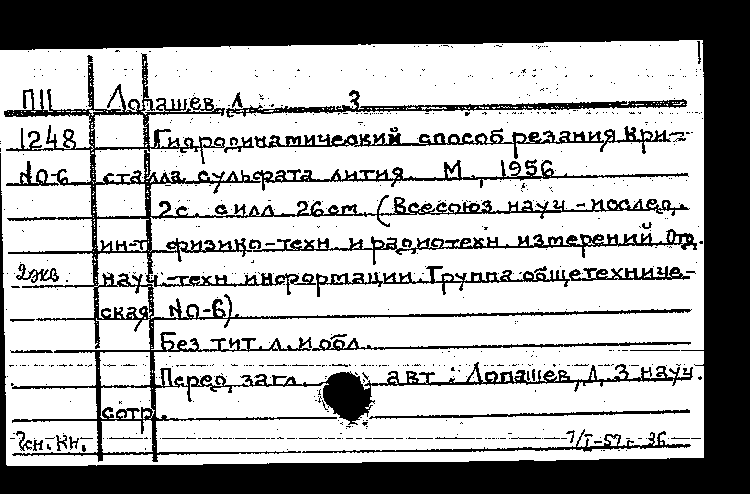 П11 Лопашев, Л. З
1248 Гидродинамический способ резания кри-
№О-6 сталла сульфата лития. М., 1956.
2с. с илл. 26cm. (Всесоюз. науч.-исслед.
ин-т физико-техн. и радиотехн. измерений. Отд.
2экз. науч.-техн. информации. Группа общетехниче-
ская №О-6).
Без тит. л. и обл.
Перед загл. авт.: Лопашев, Л. З науч.
сотр.
осн. кн. 7/I-57 г.